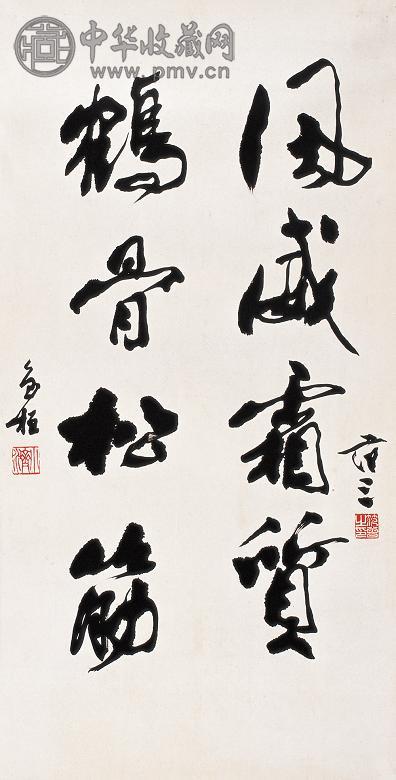 中华收藏网
www.pmv.cn
風威霜質
鶴骨松筋